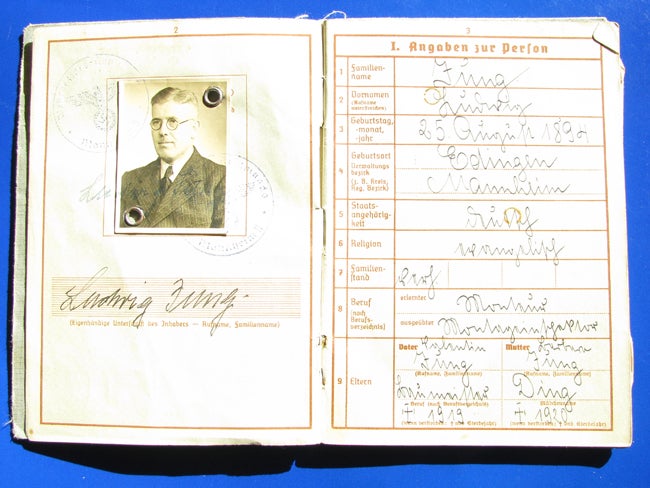 2
Ludwig Jung.
(Eigenhändige Unterschrift des Inhabers — Rufname, Familienname)
3
I. Angaben zur Person
1 Familien-
name
Jung
2 Vornamen
(Rufname
unterstreichen)
Ludwig
3 Geburtstag,
-monat,
-jahr
25. August 1894
4 Geburtsort
Verwaltungs-
bezirk
(z. B. Kreis,
Reg. Bezirk)
Edingen
Mannheim
5 Staats-
angehörig-
keit
deutsch
6 Religion
evangelisch
7 Familien-
stand
verh
8 Beruf
(nach
Berufs-
verzeichnis)
erlernter
Monteur
ausgeübter
Montageinspektor
9 Eltern
Vater Valentin
Jung
(Rufname, Familienname)
Baumeister
Beruf (nach Berufsverzeichnis)
† 1919
(wenn verstorben: † und Sterbejahr)
Mutter Barbara
Jung
(Rufname, Familienname)
Ding
Mädchenname
† 1920
(wenn verstorben: † und Sterbejahr)